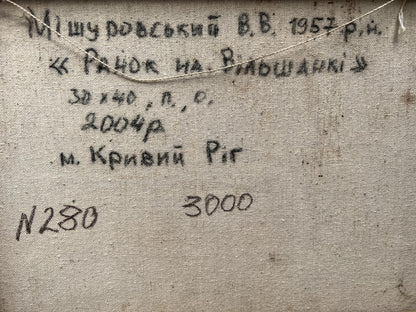 Мішуровський В.В. 1957 р.н.
« Ранок на Вільшанкі »
30х40, п., о.
2004р
м. Кривий Ріг
3000
N280